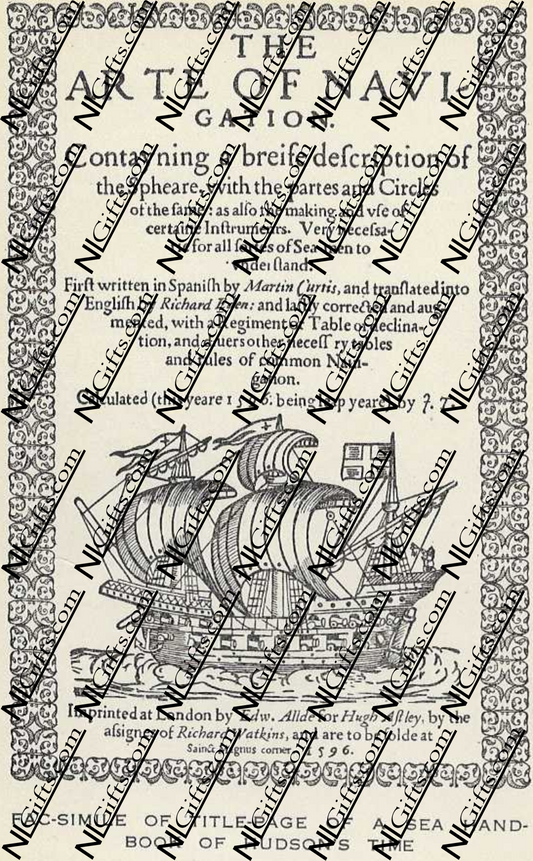 THE
ARTE OF NAVI-
GATION.
Contayning a breife deſcription of
the Spheare, with the partes and Circles
of the ſame: as alſo the making and vſe of
certaine Inſtruments. Very neceſſa-
rie for all ſortes of Sea-men to
vnderſtand.
Firſt written in Spaniſh by Martin Curtis, and tranſlated into
Engliſh by Richard Eden: and laſtly corrected and aug-
mented, with a Regiment or Table of declina-
tion, and diuers other neceſſary tables
and rules of common Naui-
gation.
Calculated (this yeare 1596. being leap yeare) by J. T.
Imprinted at London by Edw. Allde for Hugh Aſtley, by the
aſsignes of Richard Watkins, and are to be ſolde at
Sainct Magnus corner. 1596.
FAC-SIMILE OF TITLE-PAGE OF A SEA HAND-
BOOK OF HUDSON'S TIME
NIGifts.com